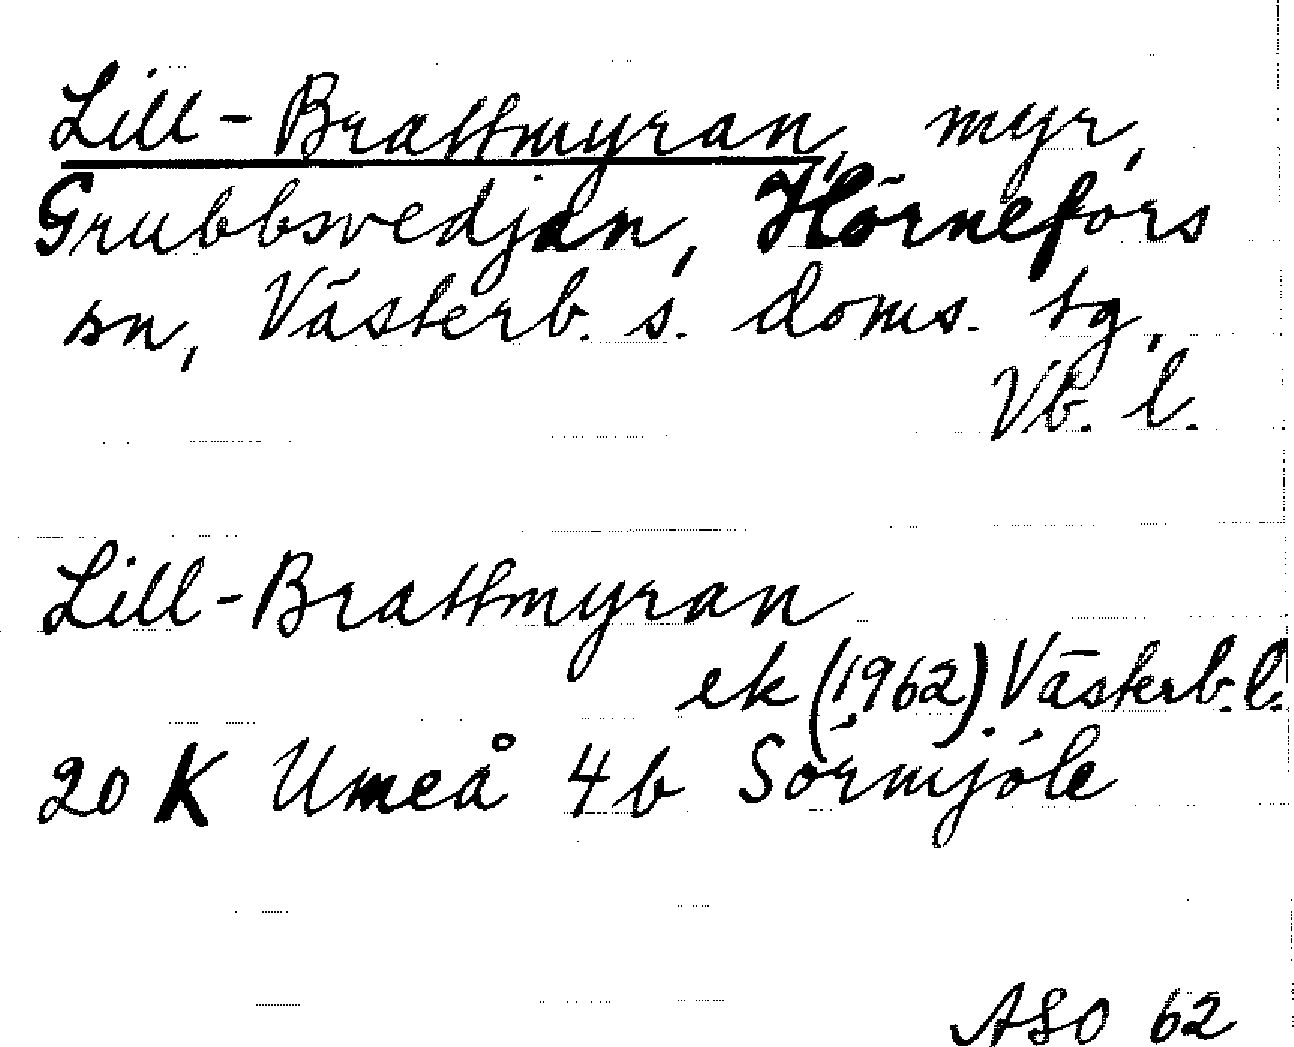 Lill-Brattmyran, myr,
Grubbsvedjan, Hörnefors
sn, Västerb. s. doms. tg,
Vb. l.
Lill-Brattmyran
ek (1962) Västerb. l.
20 K Umeå 4b Sörmjöle
ASO 62